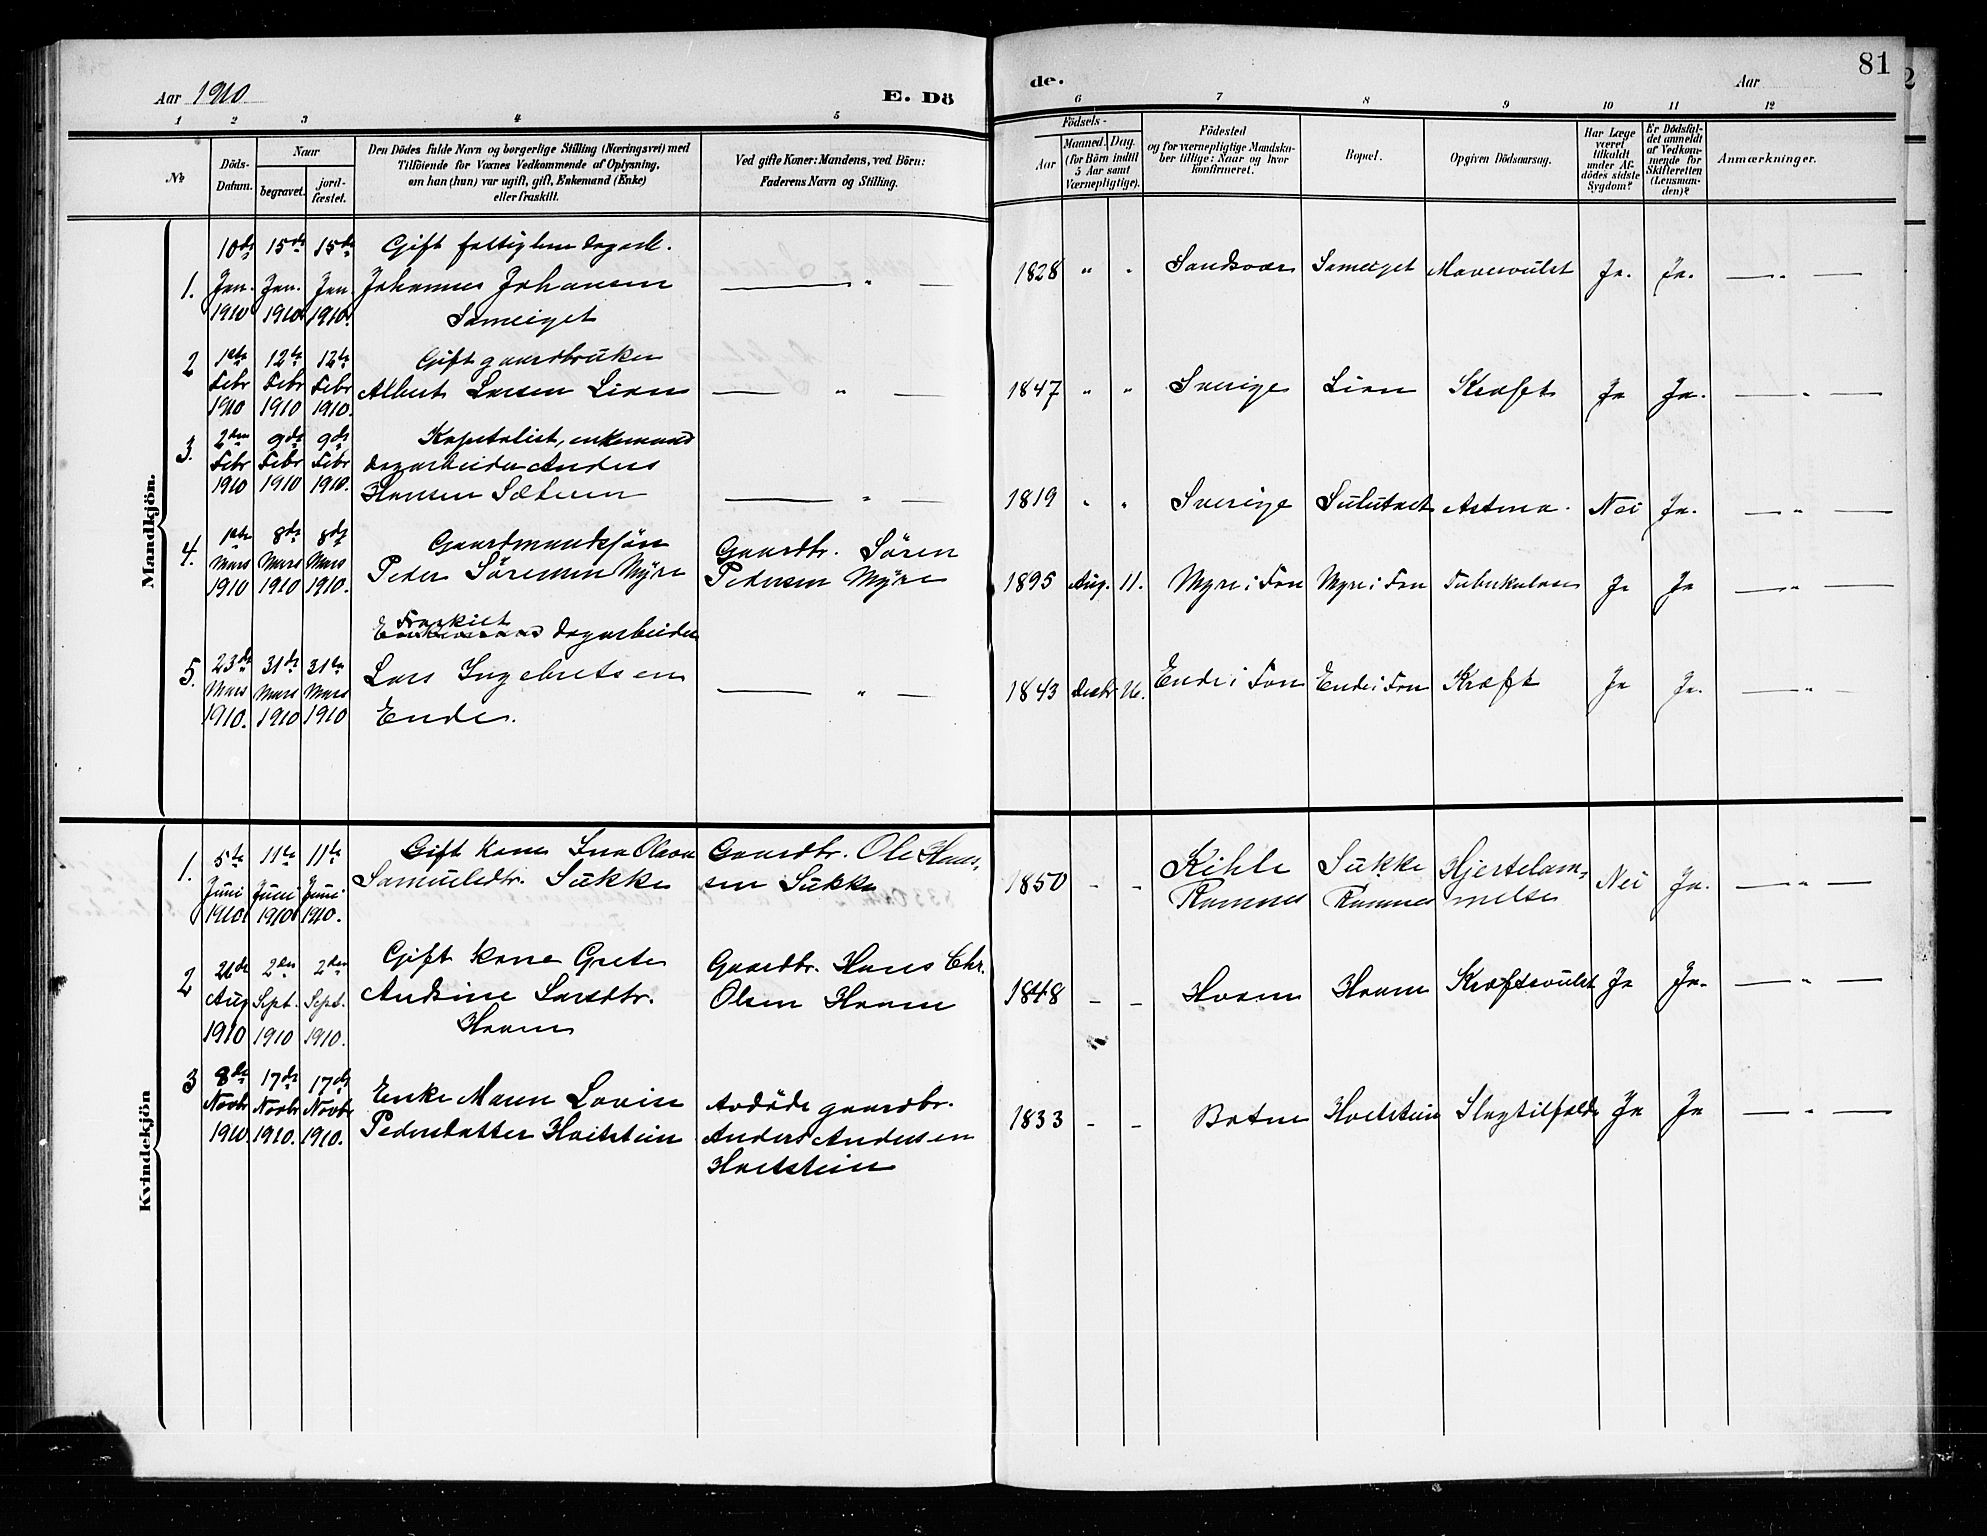 Aar 1910
E. Dö
de.
Aar
81
1 2 3 4 5
6 7 8 9 10 11 12
№
Döds-
Datum.
Naar
begravet.
jord-
fæstet.
Den Dödes fulde Navn og borgerlige Stilling (Næringsvei) med
Tilföiende for Voxnes Vedkommende af Oplysning,
om han (hun) var ugift, gift, Enkemand (Enke)
eller fraskilt.
Ved gifte Koner: Mandens, ved Börn:
Faderens Navn og Stilling.
Födsels-
Aar
Maaned. Dag.
(for Börn indtil
5 Aar samt
Værnepligtige).
Födested
og for værnepligtige Mandska-
ber tillige: Naar og hvor
konfirmeret.
Bopæl.
Opgiven Dödsaarsag.
Har Læge
været
tilkaldt
under Af-
dödes sidste
Sygdom?
Er Dödsfal-
det anmeldt
af Vedkom-
mende for
Skifteretten
(Lensman-
den)?
Anmærkninger.
Mandkjön.
1.
10de Jan. 1910
15de Jan. 1910
15de Jan. 1910.
Gift fattiglem dagarb.
Johannes Johansen
Sameiget
— " —
1828 " "
Sandsvær
Sameiget
Mavesvulst
Ja. Ja. — " —
2
1ste Febr 1910
12te Febr 1910
12te Febr 1910.
Gift gaardbruker
Albert Larsen Lian
— " —
1847 " "
Sverige
Lian
Kræft
Ja Ja. — " —
3.
2den Febr 1910
9de Febr 1910
9de Febr 1910.
enkemand
dagarbeider Anders
Hansen Sætren
— " —
1819 " "
Sverige
Astma.
Nei Ja. — " —
4.
1ste Mars 1910
8de Mars 1910
8de Mars 1910.
Gaardmandssön
Peder Sörensen Myre
Gaardbr. Sören
Pedersen Myre
1895 Aug. 11.
Myre i Fon
Myre i Fon
Tuberkulose
Ja Ja — " —
5.
23de Mars 1910.
31te Mars 1910
31te Mars 1910
Fraskilt
Enkemand dagarbeider
Lars Ingebretsen
Ende.
— " —
1843
Ende i Fon
Ende i Fon
Kræft
Ja Ja. — " —
Kvindekjön
1.
5te Juni 1910
11te Juni 1910
11te Juni 1910.
Gift kone
Samuelsdtr. Sukke
Gaardbr. Ole Han-
sen Sukke
1850 - -
Kihle
Ramnes
Sukke
Ramnes
Hjertelam-
melse
Nei Ja. — " —
2
26de Aug 1910
2den Sept. 1910
2den Sept. 1910.
Gift kone Grete
Andrine Larsdtr.
Hvam
Gaardbr. Hans Chr.
Olsen Hvam
1848 - -
Hvam
Hvam
Kræftsvulst
Ja Ja. — " —
3
8de Novbr 1910
17de Novbr 1910.
17de Novbr 1910.
Enke Maren Lovise
Pedersdatter Hvitstein
Avdöde gaardbr.
Anders Andersen
Hvitstein
1833 - -
Botne
Hvitstein
Slagtilfælde
Ja Ja — " —